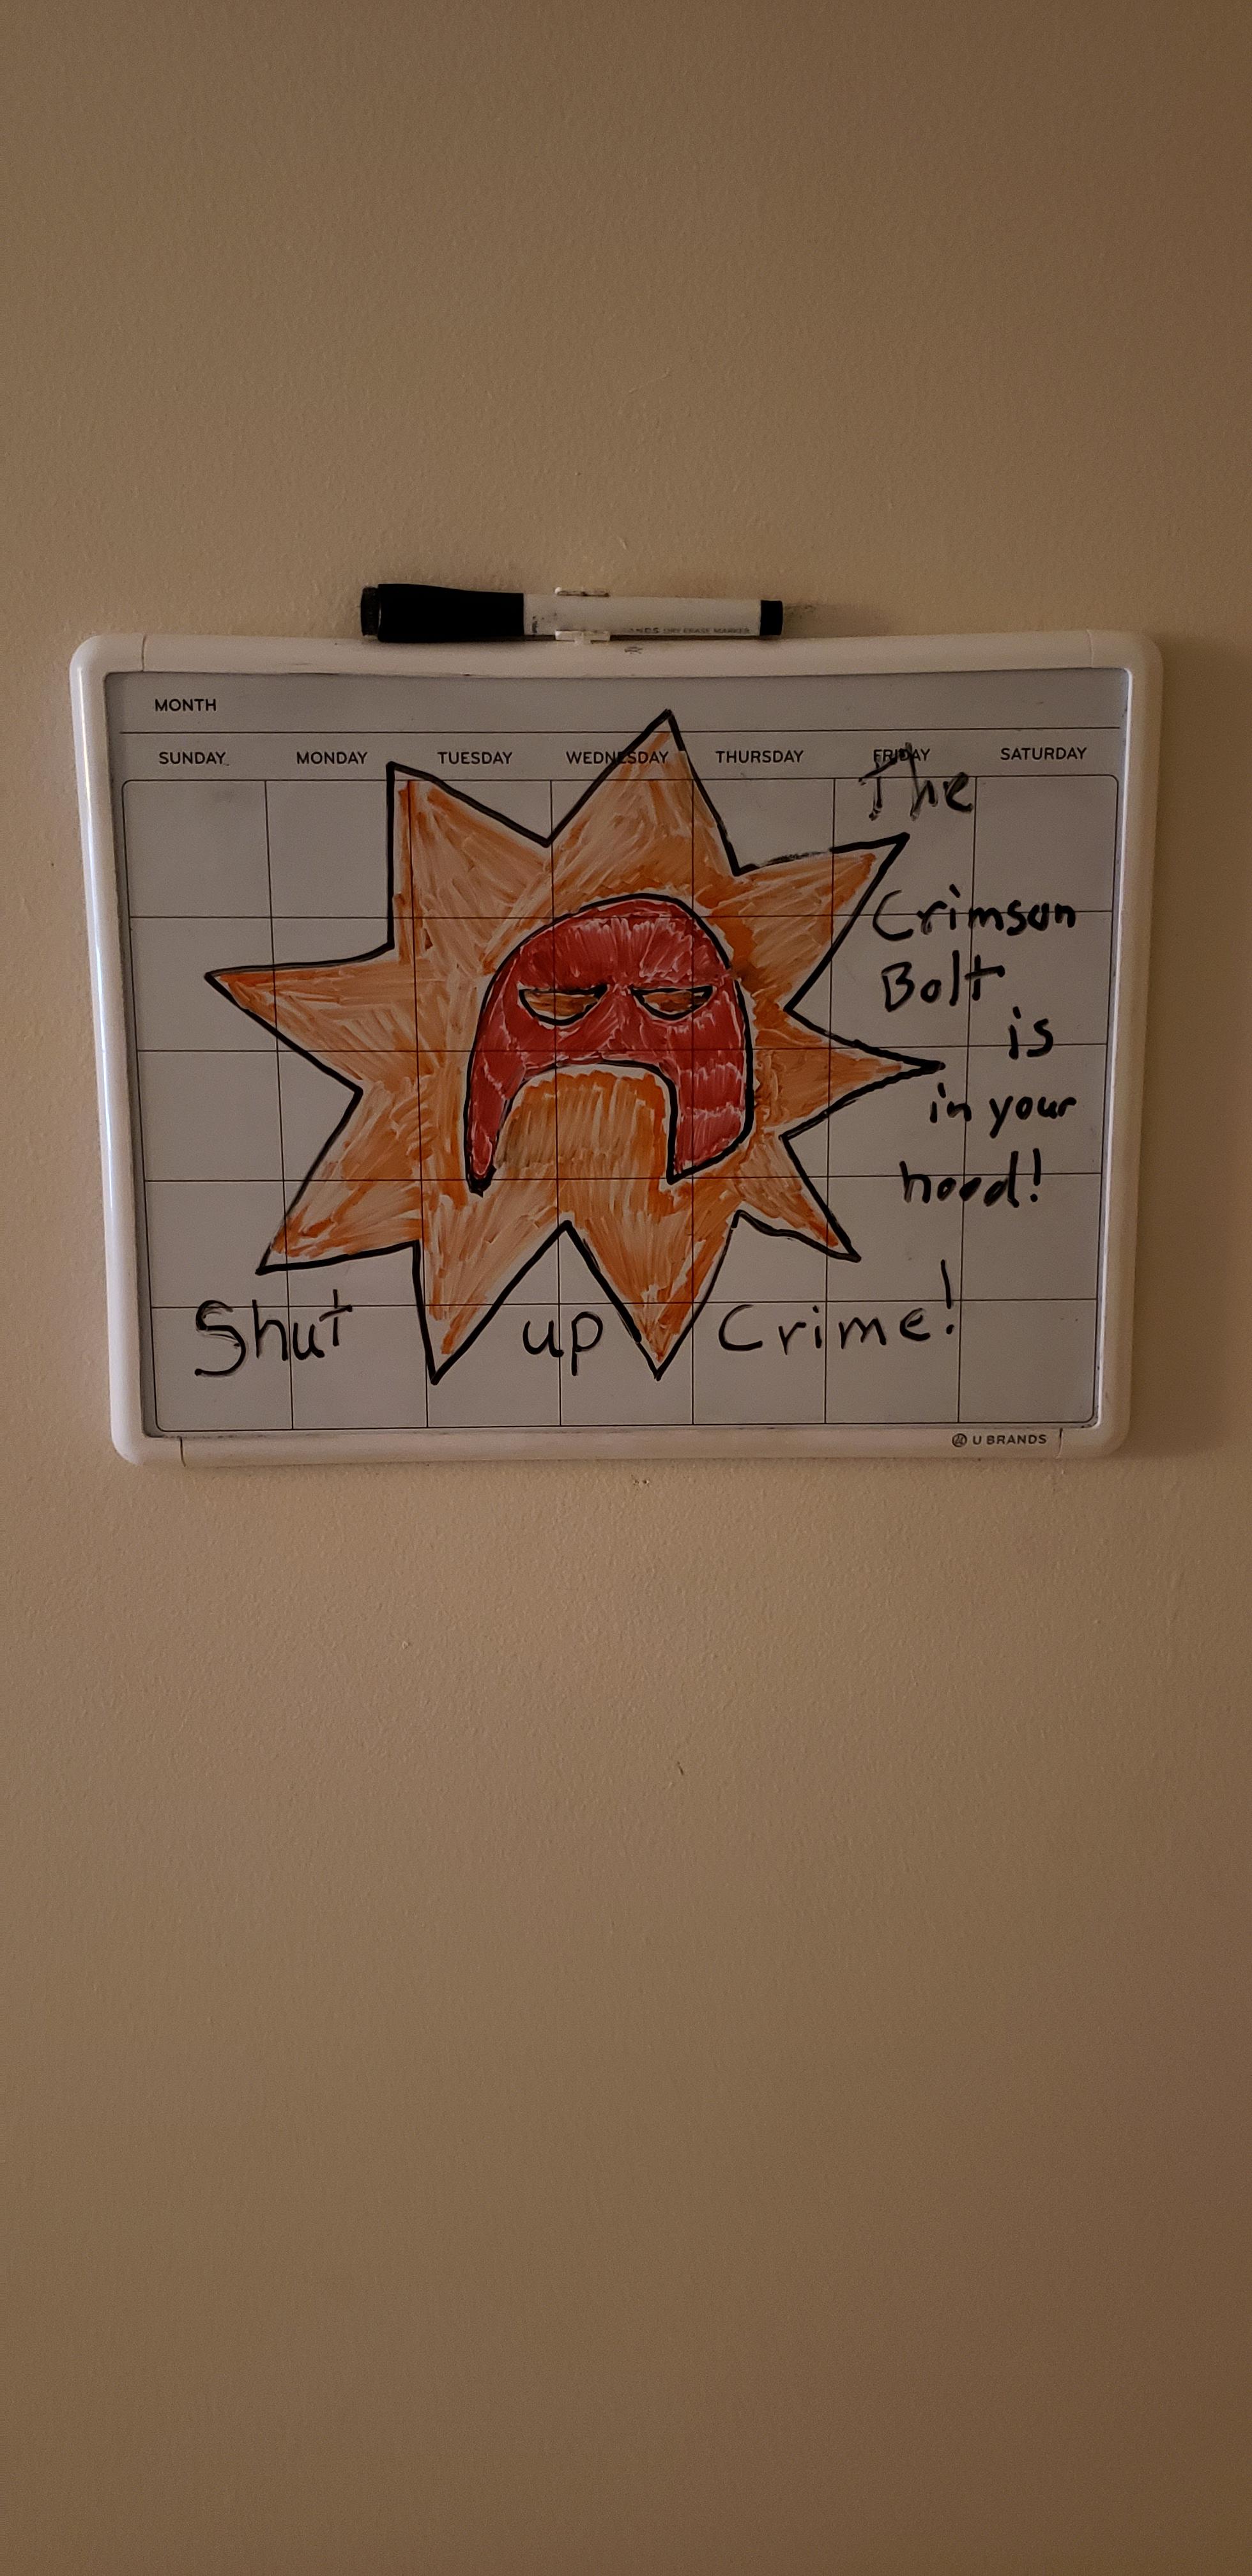 DRY ERASE MARKER
MONTH
SUNDAY MONDAY TUESDAY WEDNESDAY THURSDAY FRIDAY SATURDAY
The
Crimson
Bolt
is
in your
hood!
Shut up Crime!
U BRANDS